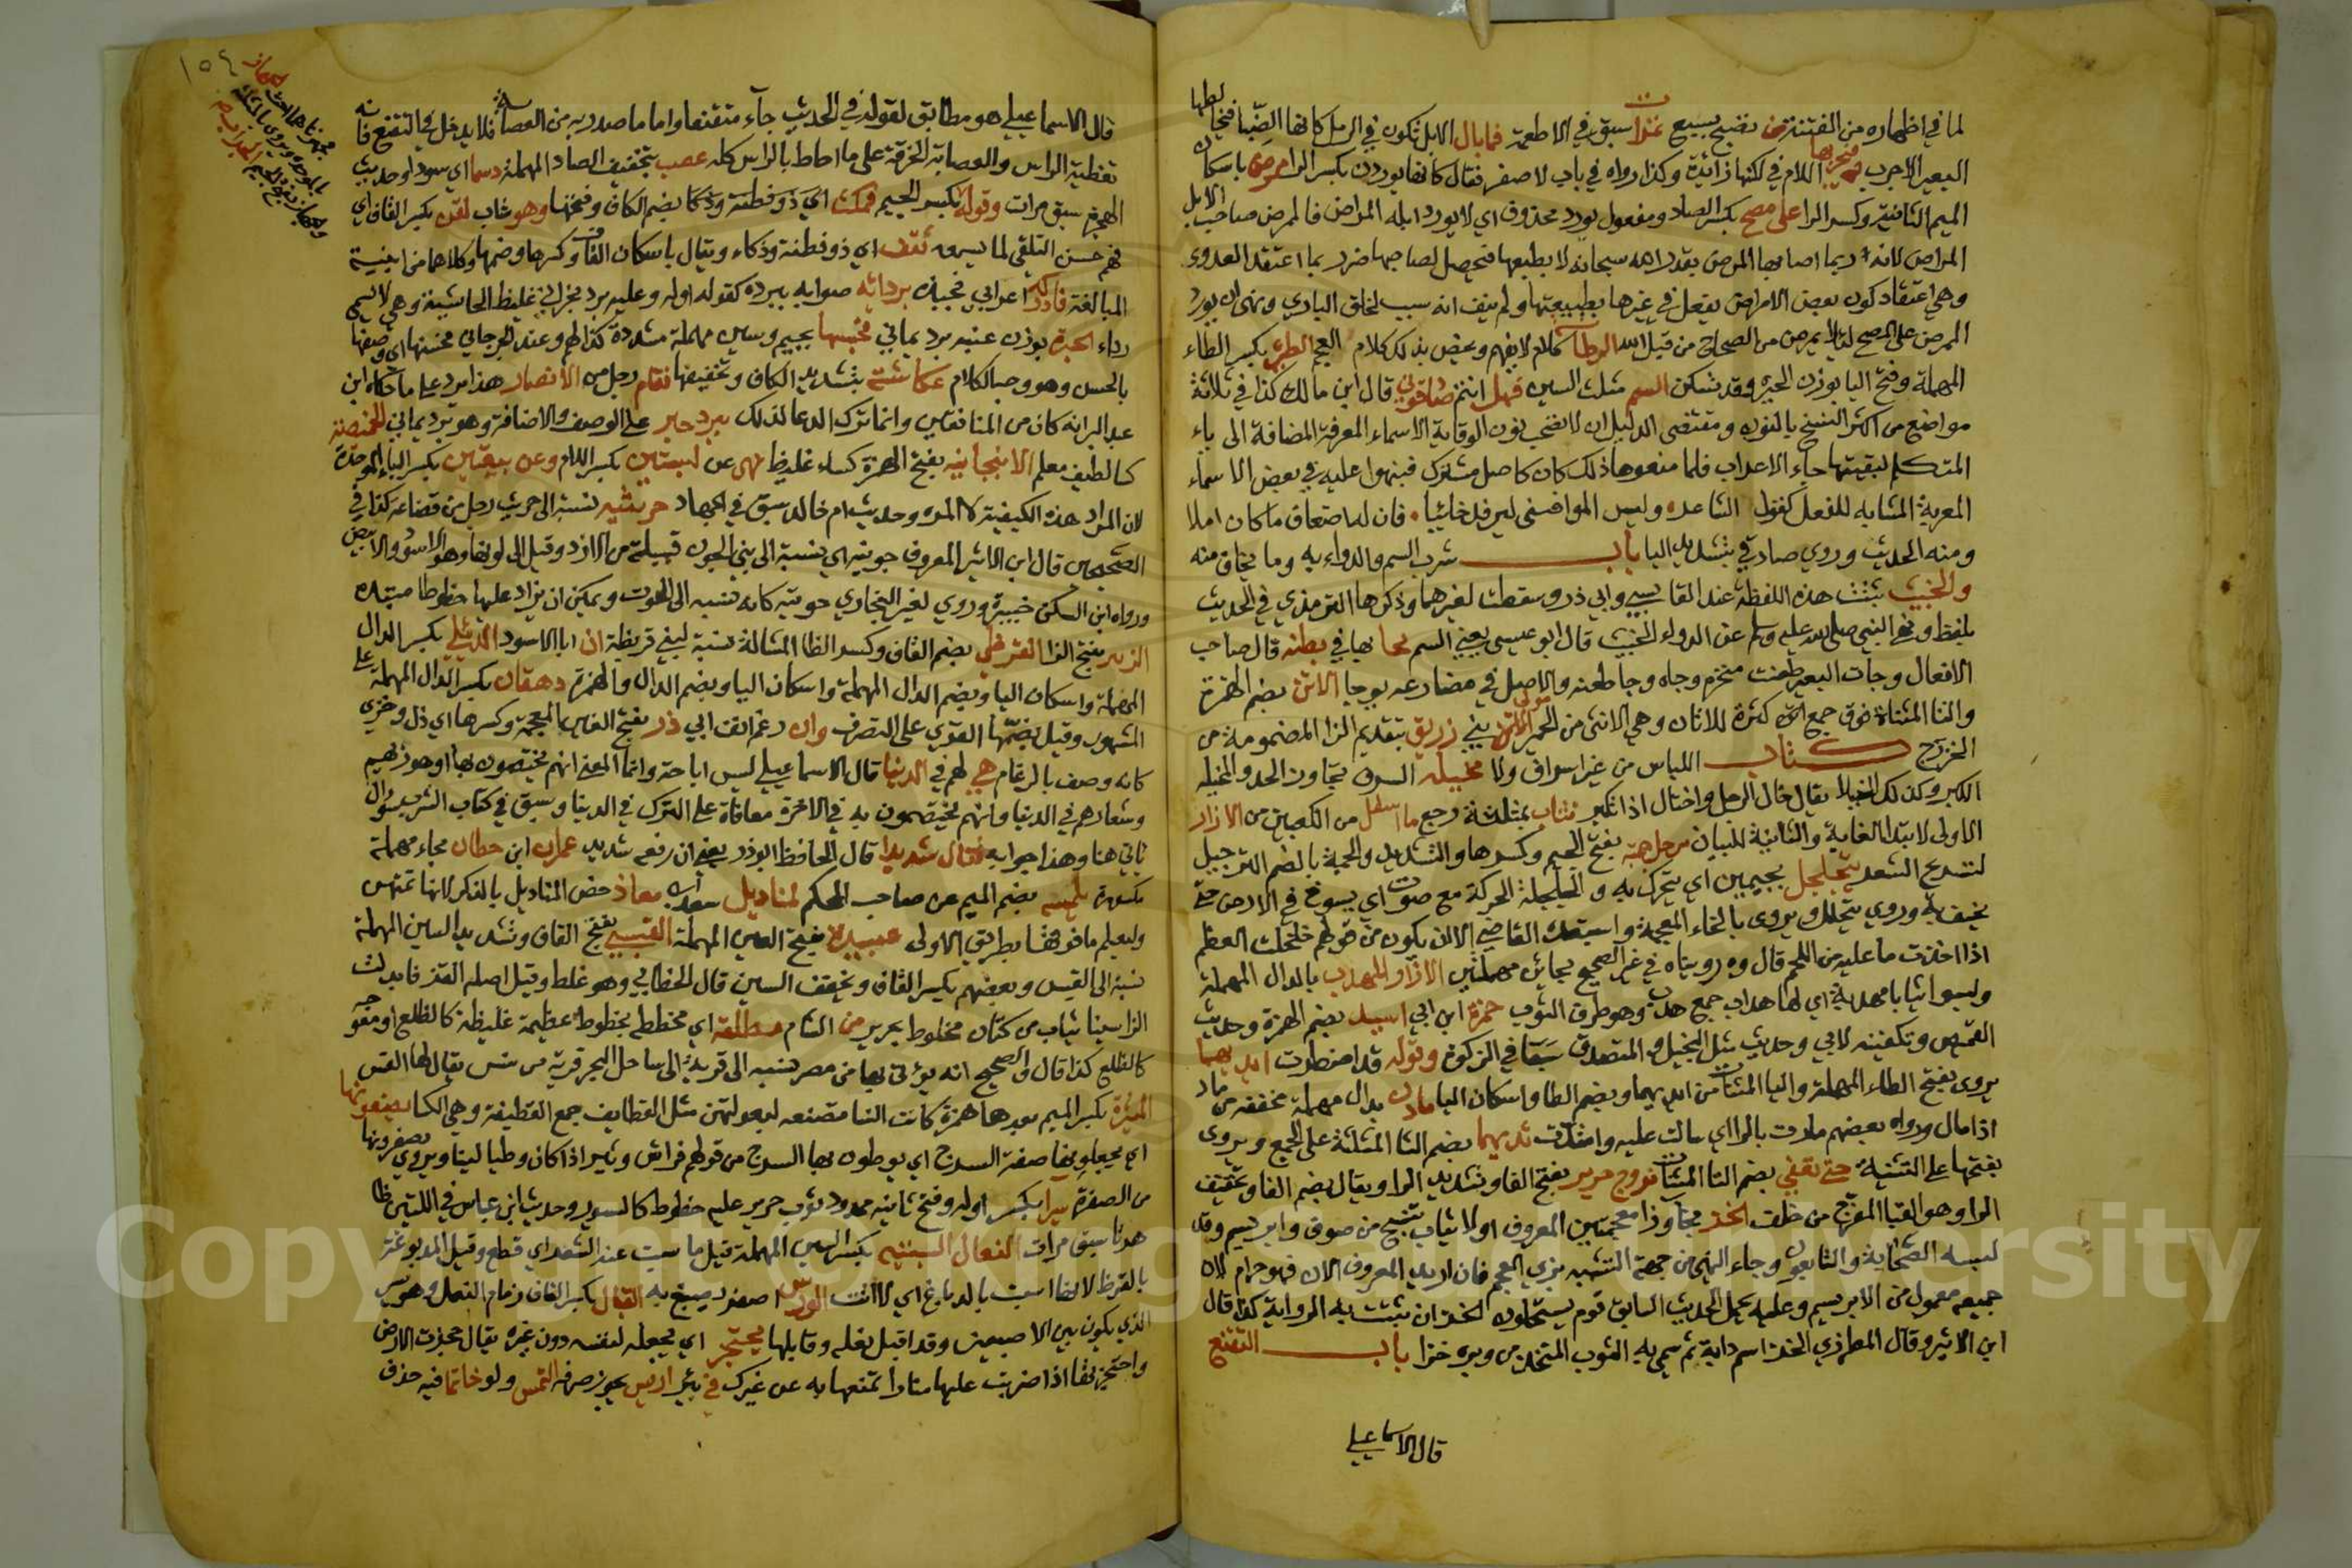 لما في اظهاره من الفتنة تمن نضيج بسبع غندا سبق في الاطعمة فما بال الابل تكون في الرمل كانها الظبا فيخالطها
البعير الاجرب فيجربها اللام في لكنها زائدة وكذا رواه في باب لا صفر فقال كانها يوردن بكسر الرا ممرض باسكان
الميم الثانية وكسر الرا على مصح بكسر الصاد ومفعول يورد محذوف اي لا يورد ابله المراض فالممرض صاحب الابل
المراض لانه ربما اصابها المرض بقدر الله سبحانه لا بطبعها فيحصل لصاحبها ضرر بما اعتقد العدوى
وهي اعتقاد كون بعض الامراض يفعل في غيرها بطبيعتها ولم ينف انه سبب لخلق الباري ونهى ان يورد
الممرض على المصح لئلا يمرض من الصحاح من قبل الله الرطانة كلام لا يفهم ويخص بذلك كلام العجم الطيرة بكسر الطاء
المهملة وفتح اليا بوزن الحيرة وقد تسكن السم مثلث السين فهل انتم صادقوني قال ابن مالك كذا في ثلاثة
مواضع من اكثر النسخ بالنون ومقتضى الدليل ان لا تصحب نون الوقاية الاسماء المعرفة المضافة الى ياء
المتكلم لبقيتها جاء الاعراب فلما منعوها ذلك كان كاصل مشترك فنبهوا عليه في بعض الاسماء
المعربة المشابه للفعل كقول الشاعر وليس الموافيني ليرفد خائبا فان له اضعاف ما كان املا
ومنه الحديث وروي صادقي بتشديد اليا باب شرب السم والدواء به وما يخاف منه
والخبيث بثنث هذه اللفظة عند القابسي وابي ذر وسقطت لغيرهما وذكرها الترمذي في الحديث
بلفظ ونهى النبي صلى الله عليه وسلم عن الدواء الخبيث قال ابو عيسى يعني السم يجا بها في بطنه قال صاحب
الافعال وجات البعير طعنت منخره وجاه وجا طعنه والاصل في مضارعه يوجا الاتن بضم الهمزة
والتا المثناة فوق جمع اتان كثرة للاتان وهي الانثى من الحمير مولى بني زريق بتقديم الزا المضمومة من
الخزرج كتاب اللباس من غير اسراف ولا مخيلة السرف يتجاوز الحد والمخيلة
الكبر وكذلك الخيلا يقال خال الرجل واختال اذا تكبر فثاب بمثلثة رجع ما اسفل من الكعبين من الازار
الاولى لابتدا الغاية والثانية للبيان مرجل جمته بفتح الجيم وكسرها والتشديد والجمة بالضم الترجيل
لتسريح الشعر يتجلجل بجيمين اي يتحرك به و الجلجلة الحركة مع صوت اي يسوخ في الارض حتى
يخسف به وروي يتجلل ويروى بالخاء المعجمة واستبعده القاضي الا ان يكون من قولهم خلخلت العظم
اذا اخذت ما عليه من اللحم قال وه رويناه في غير الصحيح بحائين مهملتين الازار المهدب بالدال المهملة
ولبسوا ثيابا مهدبة اي لها هداب جمع هدب وهو طرف الثوب حمزة ابن ابي اسيد بضم الهمزة وحديث
القميص وتكفينه لابي وحديث مثل البخيل والمتصدق سبقا في الزكوة وقوله قد اضطرت ايديهما
يروى بفتح الطاء المهملة واليا المثناة من ايديهما وبضم الطا واسكان اليا مادت بدال مهملة مخففة من ماد
اذا مال ورواه بعضهم مارت بالرا اي سالت عليه وامتدت ثديهما بضم الثا المثلثة على الجمع ويروى
بفتحها على التثنية حتى تغشي بضم التا المثناة فروج حرير بفتح الفا وتشديد الرا ويقال بضم الفا وتخفيف
الرا وهو القبا المفرج من خلف الخز بخا وزا معجمتين المعروف اولا ثياب تنسج من صوف وابريسم وقد
لبسه الصحابة والتابعون وجاء النهي من جهة التشبه بزي العجم فان اريد المعروف الان فهو حرام لان
جميعه معمول من الابريسم وعليه يحمل الحديث السابق قوم يستحلون الخز ان ثبتت به الرواية كذا قال
ابن الاثير وقال المطرزي الخز اسم دابة ثم سمي به الثوب المتخذ من وبره خزا باب التقنع
قال الاسماعيلي
١٥٤
قال الاسماعيلي هو مطابق لقوله في الحديث جاء متقنعا واما ما صدر به من العصابة فلا يدخل في التقنع فانه
تغطية الراس والعصابة الخرقة على ما احاط بالراس كله عصب بتخفيف الصاد المهملة دسما اي سودا وحديث
الهجرة سبق مرات وقوله بكسر الجيم فمكث اي ذو فطنة وذكا بضم الكاف وفتحها وهو شاب لقن بكسر القاف اي
فهم حسن التلقي لما يسمعه ثقف اي ذو فطنة وذكاء ويقال باسكان القاف وكسرها وضمها وكلاهما من ابنية
المبالغة فادركه اعرابي فجبذه بردائه صوابه ببرده كقوله اوله وعليه برد نجراني غليظ الحاشية وهي لا تسمى
رداء الحبرة بوزن عنبه برد يماني فجسها بجيم وسين مهملة مشددة كذا لهم وعند الجرجاني فحسنها اي وصفها
بالحسن وهو وجه الكلام عكاشة بتشديد الكاف وتخفيفها فقام رجل من الانصار هذا يرد على ما حكاه ابن
عبد البر انه كان من المنافقين وانما ترك الدعا لذلك ببرد حبر على الوصف والاضافة وهو برد يماني الخميصة
كسا لطيف معلم الانبجانية بفتح الهمزة كساء غليظ نهى عن لبستين بكسر اللام وعن بيعتين بكسر الباء الموحدة
لان المراد هذه الكيفية لا المرة وحديث ام خالد سبق في الجهاد حريثية نسبة الى حريث رجل من قضاعة كذا في
الصحيحين قال ابن الاثير المعروف جونية اي نسبة الى بني الجون قبيلة من الازد وقيل الى لونها وهو الاسود والابيض
ورواه ابن السكن خيبرة وروي لغير البخاري حوتية كانه نسبه الى الحوت ويمكن ان يراد عليها خطوطا ممتدة
الزبير بفتح الزا القرظي بضم القاف وكسر الظا المشالة نسبة لبني قريظة ان ابا الاسود الديلي بكسر الدال
المهملة واسكان اليا وبضم الدال المهملة واسكان اليا وبضم الدال والهمزة دهقان بكسر الدال المهملة على
المشهور وقيل بضمها القوي على التصرف وان رغم انف ابي ذر بفتح الغين المعجمة وكسرها اي ذل وخزي
كانه وصف بالرغام هي لهم في الدنيا قال الاسماعيلي ليس اباحة وانما المعنى انهم يختصون بها او هو زيهم
وشعارهم في الدنيا وانهم يختصمون به في الاخرة معافاة على الترك في الدنيا وسبق في كتاب الشرب سوال
ثاني هنا وهذا جوابه فقال شديدا قال الحافظ ابوذر يعني ان رفعه شديد عمران ابن حطان بحاء مهملة
بكسرة يلمسه بضم الميم عن صاحب المحكم لمناديل سعد ابن معاذ خص المناديل بالذكر لانها تمتهن
وليعلم ما فوقها بطريق الاولى عبيدة بفتح العين المهملة القسي بفتح القاف وتشديد السين المهملة
نسبة الى القس وبعضهم بكسر القاف وتخفف السين قال الخطابي وهو غلط وقيل اصله القز فابدلت
الزا سينا ثياب من كتان مخلوط بحرير من الشام مضلعة اي مخططة بخطوط عظيمة غليظة كالضلع او معوجه
كالضلع كذا قال والصحيح انه يؤتى بها من مصر نسبه الى قرية الى ساحل البحر قرية من تنس يقال لها القس
الميثرة بكسر الميم بعدها همزة كانت النسا تصنعه لبعولتهن مثل القطايف جمع القطيفة وهي الكسا يصفونها
اي يجعلونها صفة السرج اي يوطون بها السرج من قولهم فراش وثير اذا كان وطيا لينا ويروى يصفرونها
من الصفرة سيرا بكسر اوله وفتح ثانيه ممدود ثوب حرير عليه خطوط كالسيور وحديث ابن عباس في اللتين تظاهرتا
سبق مرات النعال السبتية بكسر السين المهملة قيل ما سبت عنه الشعر اي قطع وقيل المدبوغة
بالقرظ لانها اسبت بالدباغ اي لانت الورس اصفر يصبغ به القبال بكسر القاف زمام النعل وهو سير
الذي يكون بين الاصبعين وقد اقبل نعله وقابلها يحتجر اي يجعله لنفسه دون غيره يقال حجرت الارض
واحتجرتها اذا ضربت عليها منارا تمنعها به عن غيرك في بئر اريس يجوز صرفه التمس ولو خاتما فيه حذف